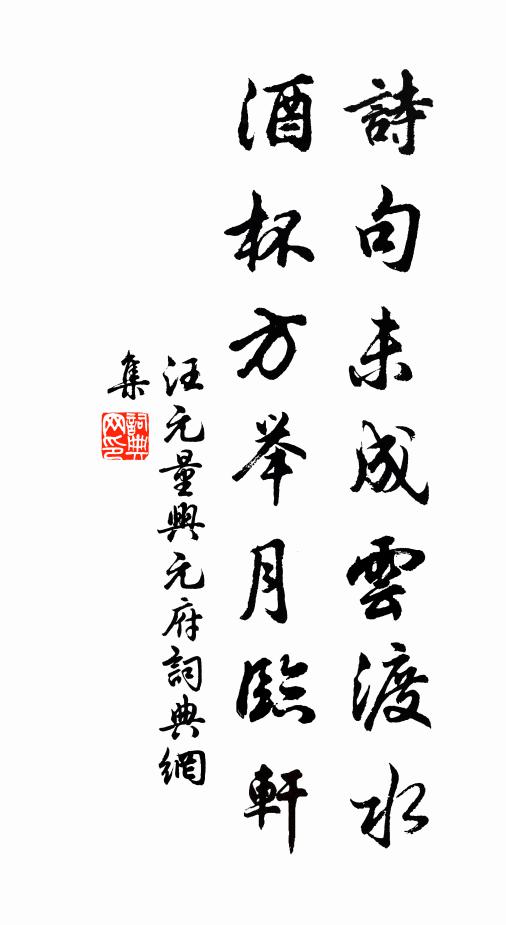 詩句未成雲渡水
酒杯方举月臨軒
汪元量興元府詞典網
集
詞典
网印